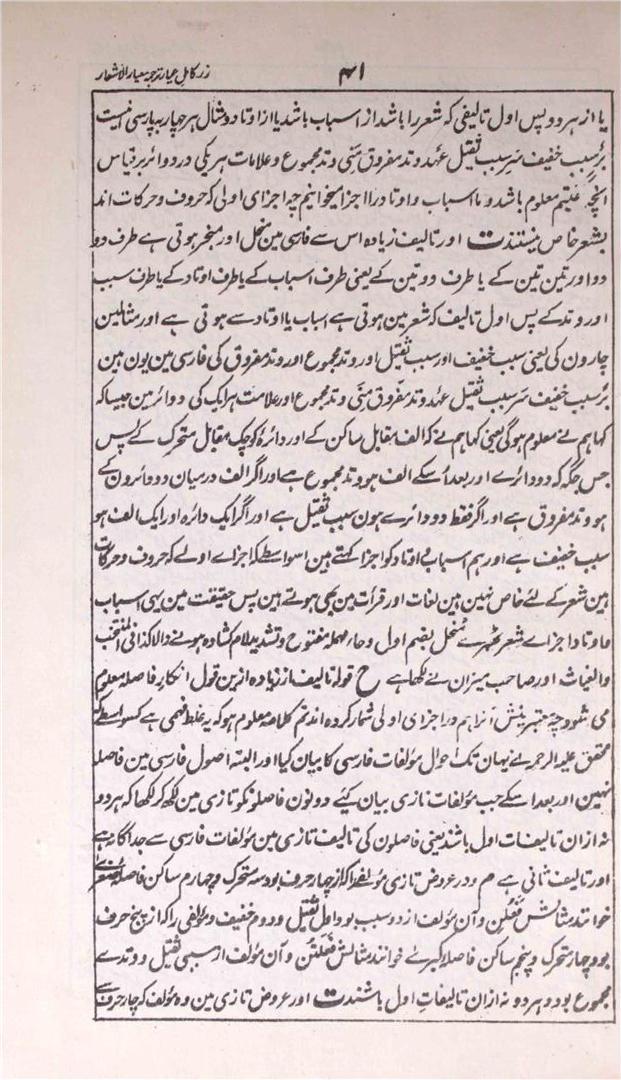 زر کامل عیار ترجمہ معیار الاشعار
۴۱
یا از ہر دو پس اول تالیفی کہ شعر را باشد از اسباب باشد یا از اوتاد و مثال ہر چہار بہ پارسی اینست
بُر سبب خفیف سَرِ سبب ثقیل عہد وتد مفروق مَنَی وتد مجموع و علامات ہر یکی در دوائر بر قیاس
انچہ گفتیم معلوم باشد و ما اسباب و اوتاد را اجزا میخوانیم چہ اجزای اولی کہ حروف و حرکات اند
بشعر خاص نیستند ت اور تالیف زیادہ اس سے فارسی مین منحل اور منجر ہوتی ہے طرف دو
دو اور تین تین کے یا طرف دو تین کے یعنی طرف اسباب کے یا طرف اوتاد کے یا طرف سبب
اور وتد کے پس اول تالیف کہ شعر مین ہوتی ہے اسباب یا اوتاد سے ہوتی ہے اور مثالین
چارون کی یعنی سبب خفیف اور سبب ثقیل اور وتد مجموع اور وتد مفروق کی فارسی مین یون ہین
بُر سبب خفیف سَرِ سبب ثقیل عہد وتد مفروق مَنَی وتد مجموع اور علامت ہر ایک کی دوائر مین جیسا کہ
کہا ہم نے معلوم ہوگی یعنی کہا ہم نے کہ الف مقابل ساکن کے اور دائرۂ کوچک مقابل متحرک کے پس
جس جگہ کہ دو دائرے اور بعد اُسکے الف ہو وتد مجموع ہے اور اگر الف درمیان دو دائرون کے
ہو وتد مفروق ہے اور اگر فقط دو دائرے ہون سبب ثقیل ہے اور اگر ایک دائرہ اور ایک الف ہو
سبب خفیف ہے اور ہم اسباب و اوتاد کو اجزا کہتے ہین اسواسطے کہ اجزاے اولے کہ حروف و حرکات
ہین شعر کے لئے خاص نہین ہین لغات اور قرأت مین بھی ہوتے ہین پس حقیقت مین یہی اسباب
و اوتاد اجزاے شعر ٹھہرے مُنحل بضم اول و حاء مہملہ مفتوح و تشدید لام کشادہ ہونے والا کذا فی المنتخب
والغیاث اور صاحب میزان نے لکھا ہے ح قولہ تالیف از زیادہ ازین قول انکار فاصلہ معلوم
می شود چہ معتبرینش آنرا ہم در اجزای اولی شمار کردہ اند تم کلامہ معلوم ہو کہ یہ غلط فہمی ہے کسواسطے کہ
محقق علیہ الرحمہ نے یہان تک احوال مؤلفات فارسی کا بیان کیا اور البتہ اصول فارسی مین فاصلہ
نہین اور بعد اسکے جب مؤلفات تازی بیان کیئے دونون فاصلونکو تازی مین لکھکر لکھا کہ ہر دو
نہ ازان تالیفات اول باشند یعنی فاصلون کی تالیف تازی مین مؤلفات فارسی سے جداگانہ ہے
اور تالیف ثانی ہے م و در عروض تازی مؤلفی را کہ از چہار حرف بود سہ متحرک و چہارم ساکن فاصلہ صغرےٰ
خوانند مثالش فَعَلُن و آن مؤلف از دو سبب بود اول ثقیل و دوم خفیف و مؤلفی را کہ از پنج حرف
بود چہار متحرک و پنجم ساکن فاصلہ کبرےٰ خوانند مثالش فَعَلَتُن و آن مؤلف از سببی ثقیل و وتدے
مجموع بود و ہر دو نہ ازان تالیفات اول باشند ت اور عروض تازی مین وہ مؤلف کہ چار حرف سے